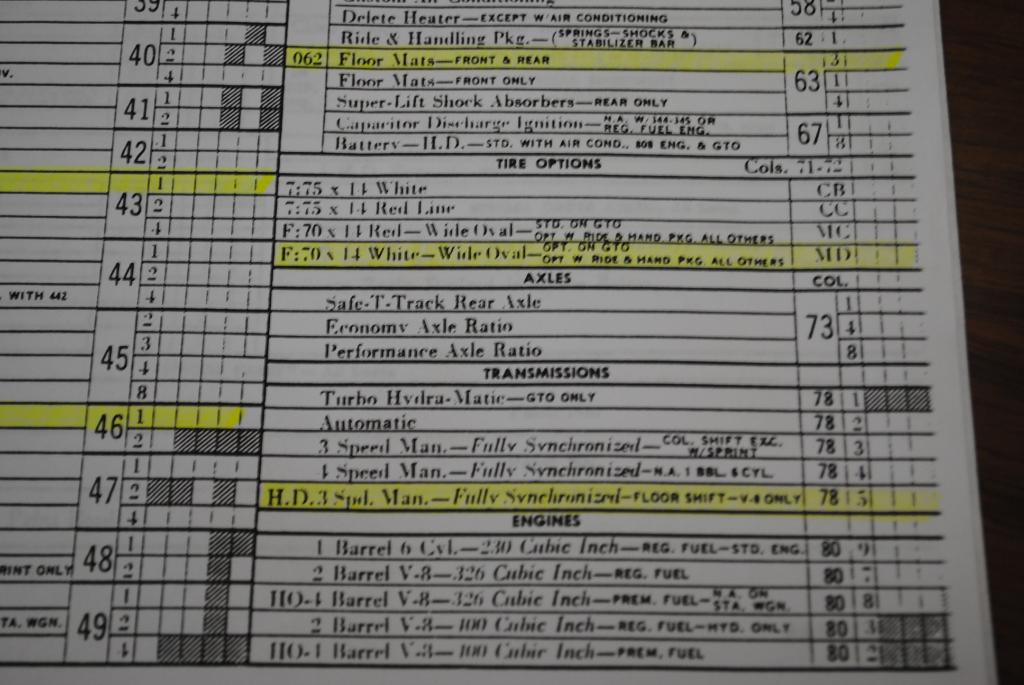 39 4
58
Delete Heater—EXCEPT W/AIR CONDITIONING
Ride & Handling Pkg.—(SPRINGS—SHOCKS & STABILIZER BAR) 62 1
40 1 2 4
062 Floor Mats—FRONT & REAR 3
Floor Mats—FRONT ONLY 63 1
Super-Lift Shock Absorbers—REAR ONLY 4
41 1 2
Capacitor Discharge Ignition—N.A. W/344-345 OR REG. FUEL ENG. 67 1
Battery—H.D.—STD. WITH AIR COND., 808 ENG. & GTO 8
42 1 2
TIRE OPTIONS Cols. 71-72
43 1 2 4
7:75 x 14 White CB
7:75 x 14 Red Line CC
F:70 x 14 Red—Wide Oval—STD. ON GTO OPT W RIDE & HAND PKG. ALL OTHERS MC
F:70 x 14 White—Wide Oval—OPT. ON GTO OPT W RIDE & HAND PKG. ALL OTHERS MD
44 1 2 4
AXLES COL.
WITH 442
Safe-T-Track Rear Axle 1
Economy Axle Ratio 73 4
Performance Axle Ratio 8
45 2 3 4 8
TRANSMISSIONS
Turbo Hydra-Matic—GTO ONLY 78 1
46 1 2
Automatic 78 2
3 Speed Man.—Fully Synchronized—COL. SHIFT EXC. W/SPRINT 78 3
4 Speed Man.—Fully Synchronized—N.A. 1 BBL. 6 CYL. 78 4
47 1 2 4
H.D. 3 Spd. Man.—Fully Synchronized—FLOOR SHIFT—V-8 ONLY 78 5
ENGINES
48 1 2
1 Barrel 6 Cyl.—230 Cubic Inch—REG. FUEL—STD. ENG. 80 9
RINT ONLY
2 Barrel V-8—326 Cubic Inch—REG. FUEL 80 7
HO-4 Barrel V-8—326 Cubic Inch—PREM. FUEL—N.A. ON STA. WGN. 80 8
TA. WGN.
49 1 2 4
2 Barrel V-8—400 Cubic Inch—REG. FUEL—HYD. ONLY 80 3
HO-4 Barrel V-8—400 Cubic Inch—PREM. FUEL 80 2